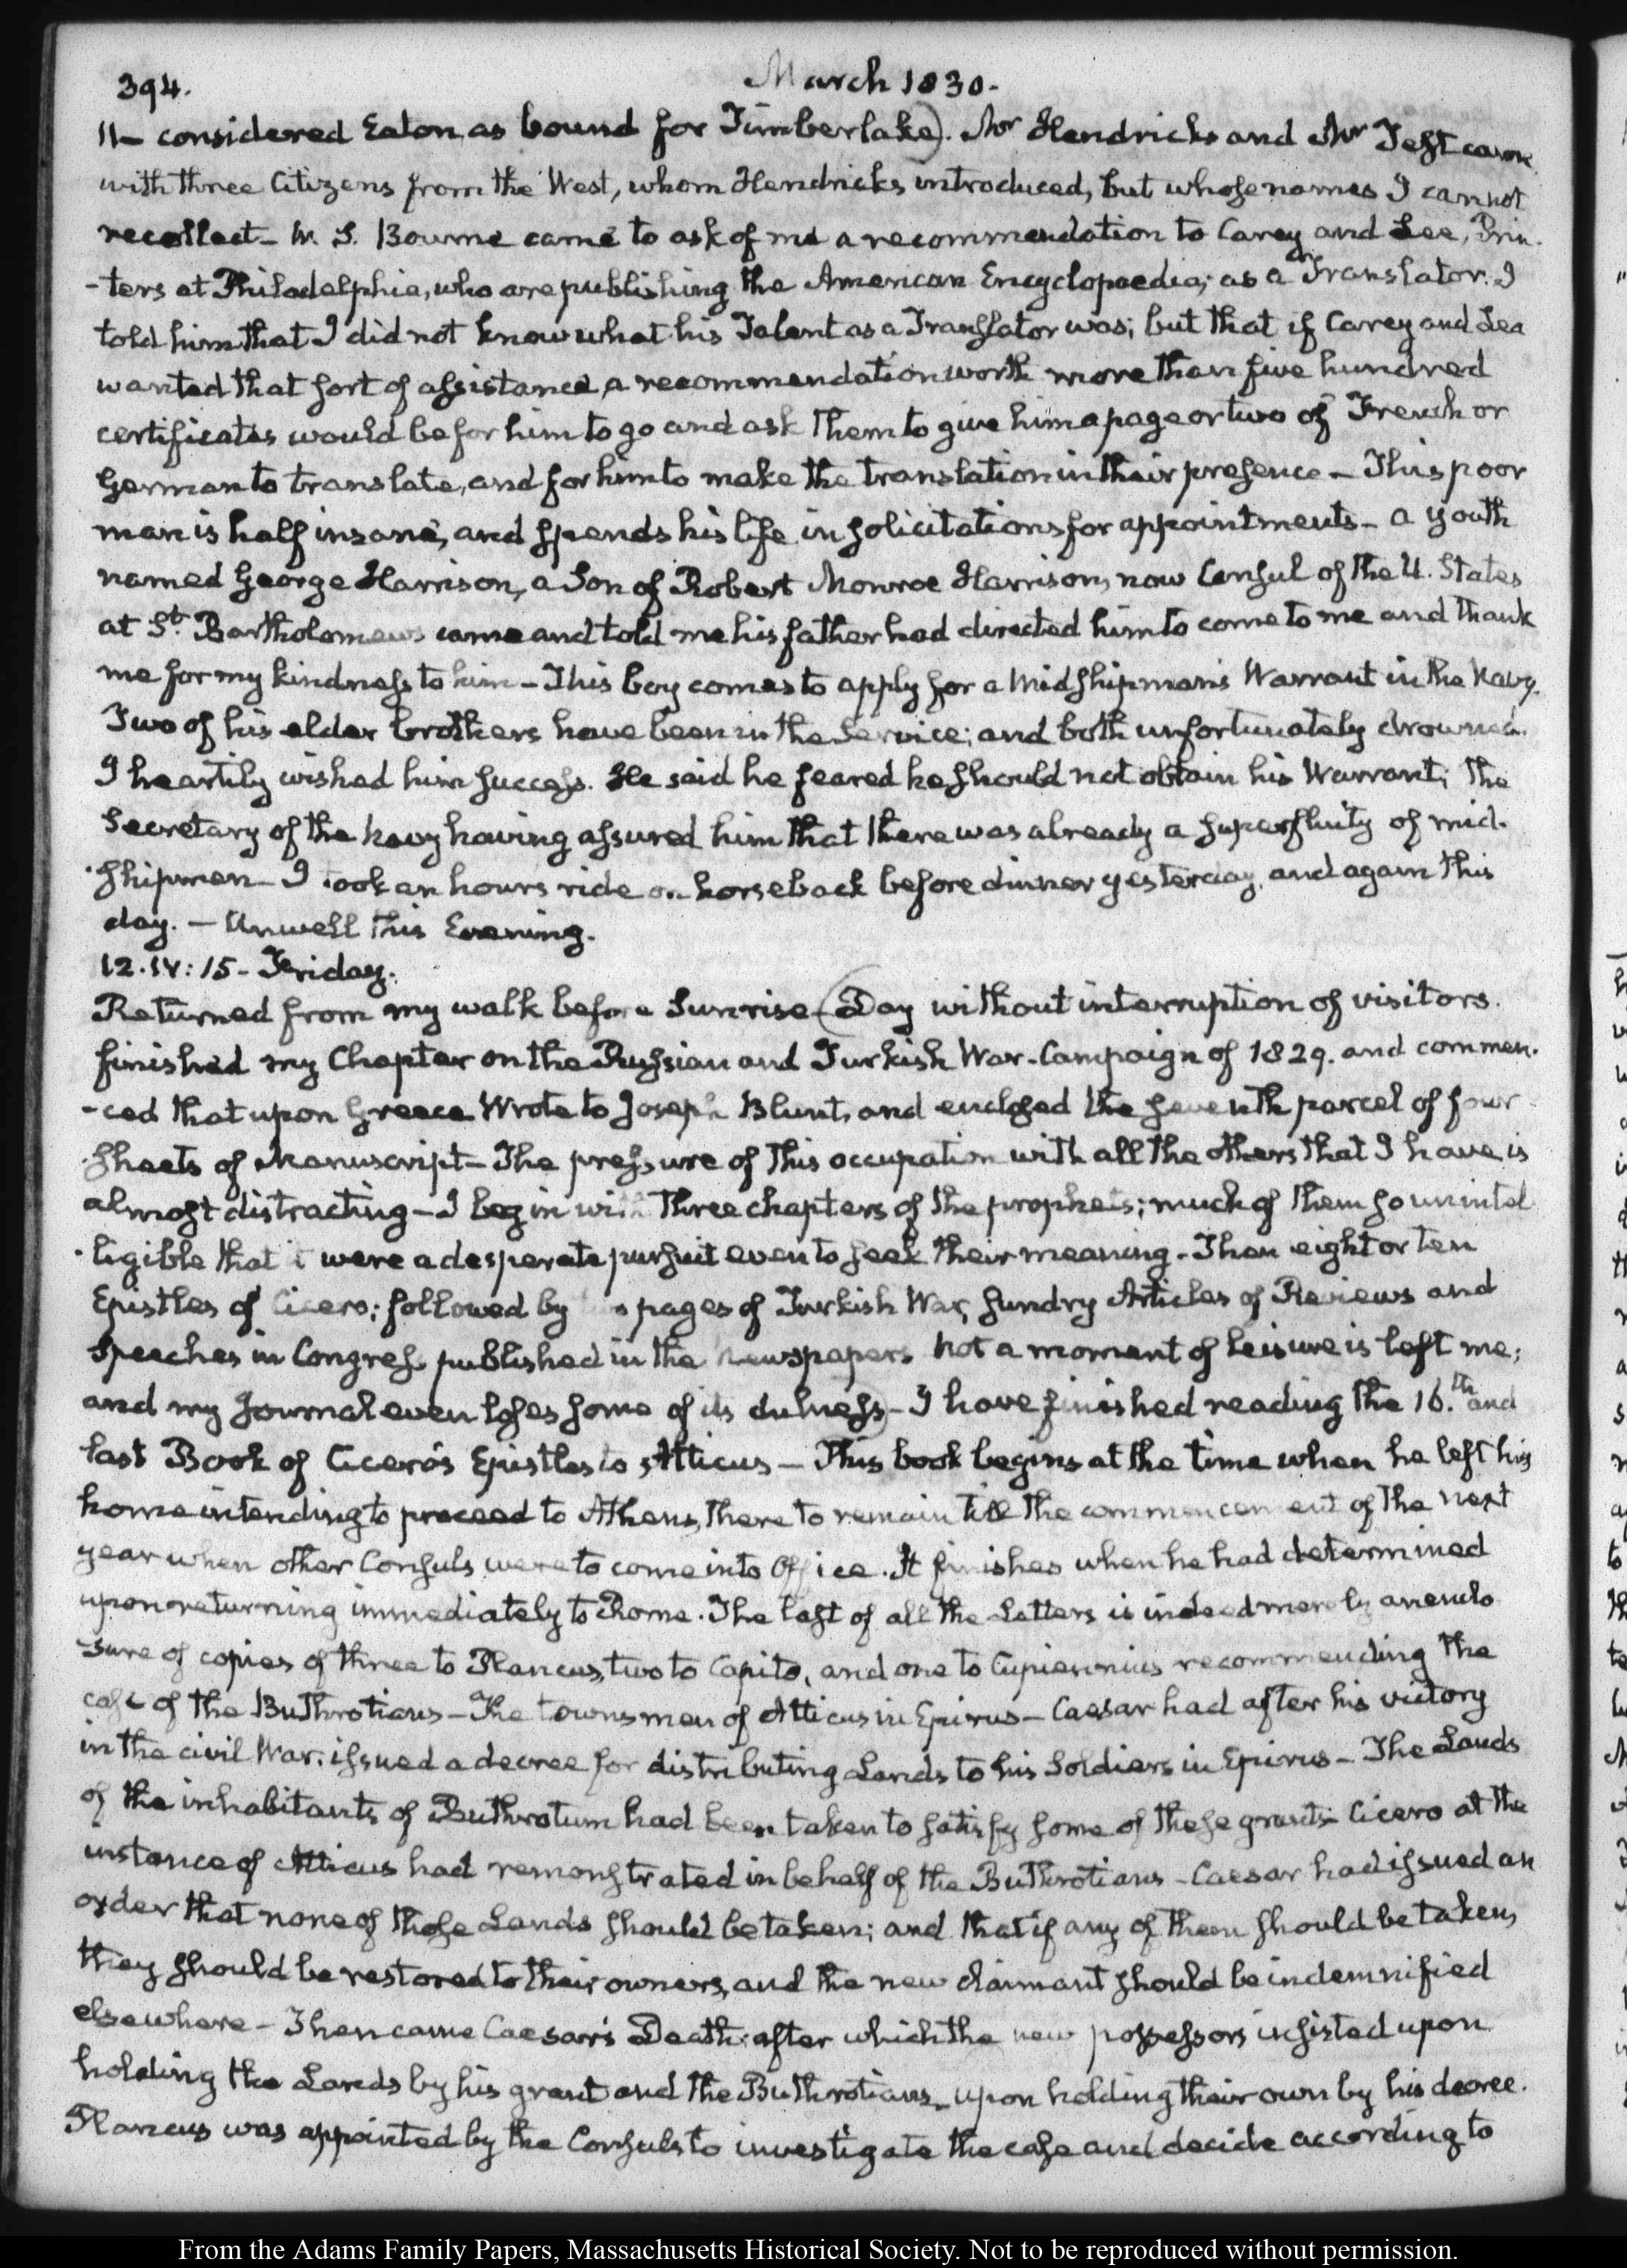 394.
March 1830.
11— considered Eaton as bound for Timberlake). Mr Hendricks and Mr Test came
with three Citizens from the West, whom Hendricks introduced, but whose names I cannot
recollect— W. S. Bourne came to ask of me a recommendation to Carey and Lee, Prin-
-ters at Philadelphia, who are publishing the American Encyclopaedia; as a Translator. I
told him that I did not know what his Talent as a Translator was; but that if Carey and Lea
wanted that sort of assistance, a recommendation worth more than five hundred
certificates would be for him to go and ask them to give him a page or two of French or
German to translate, and for him to make the translation in their presence— This poor
man is half insane, and spends his life in solicitations for appointments— a youth
named George Harrison, a Son of Robert Monroe Harrison, now Consul of the U. States
at St. Bartholomews came and told me his father had directed him to come to me and thank
me for my kindness to him— This boy comes to apply for a Midshipman's Warrant in the Navy.
Two of his elder brothers have been in the Service; and both unfortunately drowned.
I heartily wished him success. He said he feared he should not obtain his Warrant; the
Secretary of the Navy having assured him that there was already a superfluity of mid-
-shipmen— I took an hours ride on horseback before dinner yesterday, and again this
day. — Unwell this Evening.
12. IV:15— Friday.
Returned from my walk before Sunrise— (Day without interruption of visitors.
finished my Chapter on the Russian and Turkish War— Campaign of 1829. and commen-
-ced that upon Greece Wrote to Joseph Blunt, and enclosed the seventh parcel of four
sheets of Manuscript— The pressure of this occupation with all the others that I have is
almost distracting— I begin with three chapters of the prophets; much of them so unintel
-ligible that it were a desperate pursuit even to seek their meaning— Then eight or ten
Epistles of Cicero; followed by pages of Turkish War, sundry Articles of Reviews and
Speeches in Congress published in the newspapers Not a moment of leisure is left me;
and my Journal even loses some of its dulness)— I have finished reading the 16.th and
last Book of Cicero's Epistles to Atticus— This book begins at the time when he left his
home intending to proceed to Athens, there to remain till the commencement of the next
year when other Consuls were to come into Office. It finishes when he had determined
upon returning immediately to Rome. The last of all the Letters is indeed merely an enclo
-sure of copies of three to Plancus, two to Capito, and one to Cupiennius recommending the
case of the Buthrotians— The townsmen of Atticus in Epirus— Caesar had after his victory
in the civil War, issued a decree for distributing Lands to his Soldiers in Epirus— The Lands
of the inhabitants of Buthrotum had been taken to satisfy some of these grants— Cicero at the
instance of Atticus had remonstrated in behalf of the Buthrotians— Caesar had issued an
order that none of those Lands should be taken; and that if any of them should be taken,
they should be restored to their owners, and the new claimant should be indemnified
elsewhere— Then came Caesar's Death; after which the new possessors insisted upon
holding the Lands by his grant and the Buthrotians— upon holding their own by his decree.
Plancus was appointed by the Consuls to investigate the case and decide according to
From the Adams Family Papers, Massachusetts Historical Society. Not to be reproduced without permission.